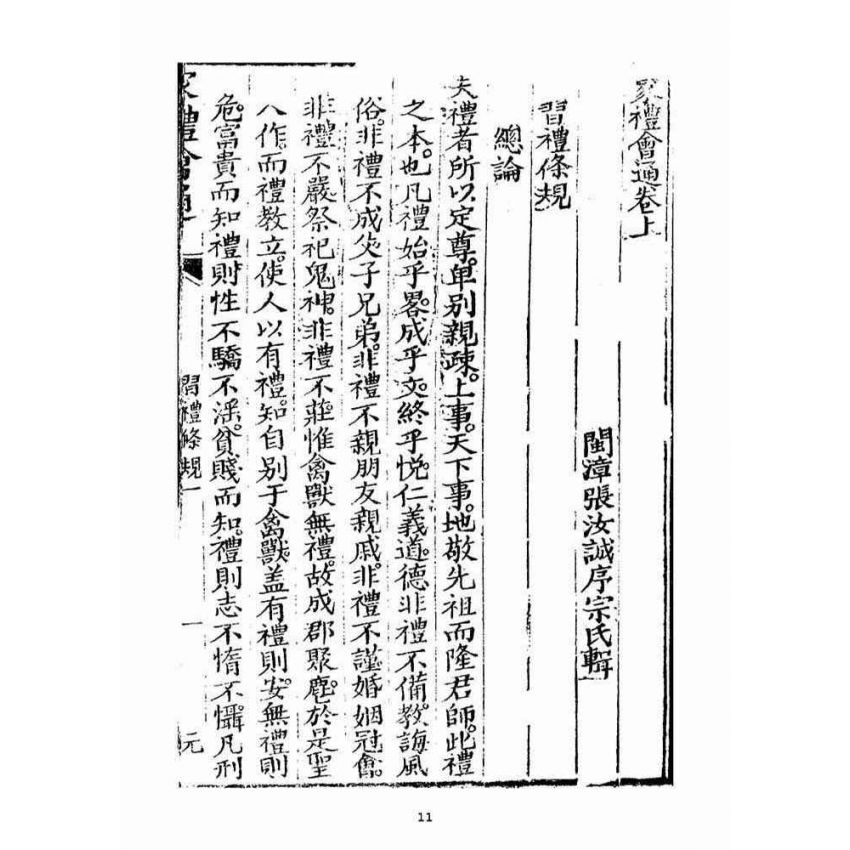 家禮會通卷上
閩漳張汝誠序宗氏輯
習禮條規
總論
夫禮者所以定尊。卑别親疎。上事。天下事。地敬先祖而隆君師。此禮
之本。也凡禮始乎畧。成乎文。終乎悅。仁義道。德非禮不備。教誨風
俗。非禮不成父子兄弟。非禮不親朋友親戚。非禮不謹婚姻冠
非禮不嚴祭祀鬼神。非禮不莊惟禽獸無禮。故成郡聚麀。於是聖
人作。而禮教立。使人以有禮。知自别于禽獸。盖有禮則安。無禮則
危。富貴而知禮則性不驕不淫。貧賤而知。禮則志不惰不懾。凡刑
家禮會通
習禮條規
一
元
11